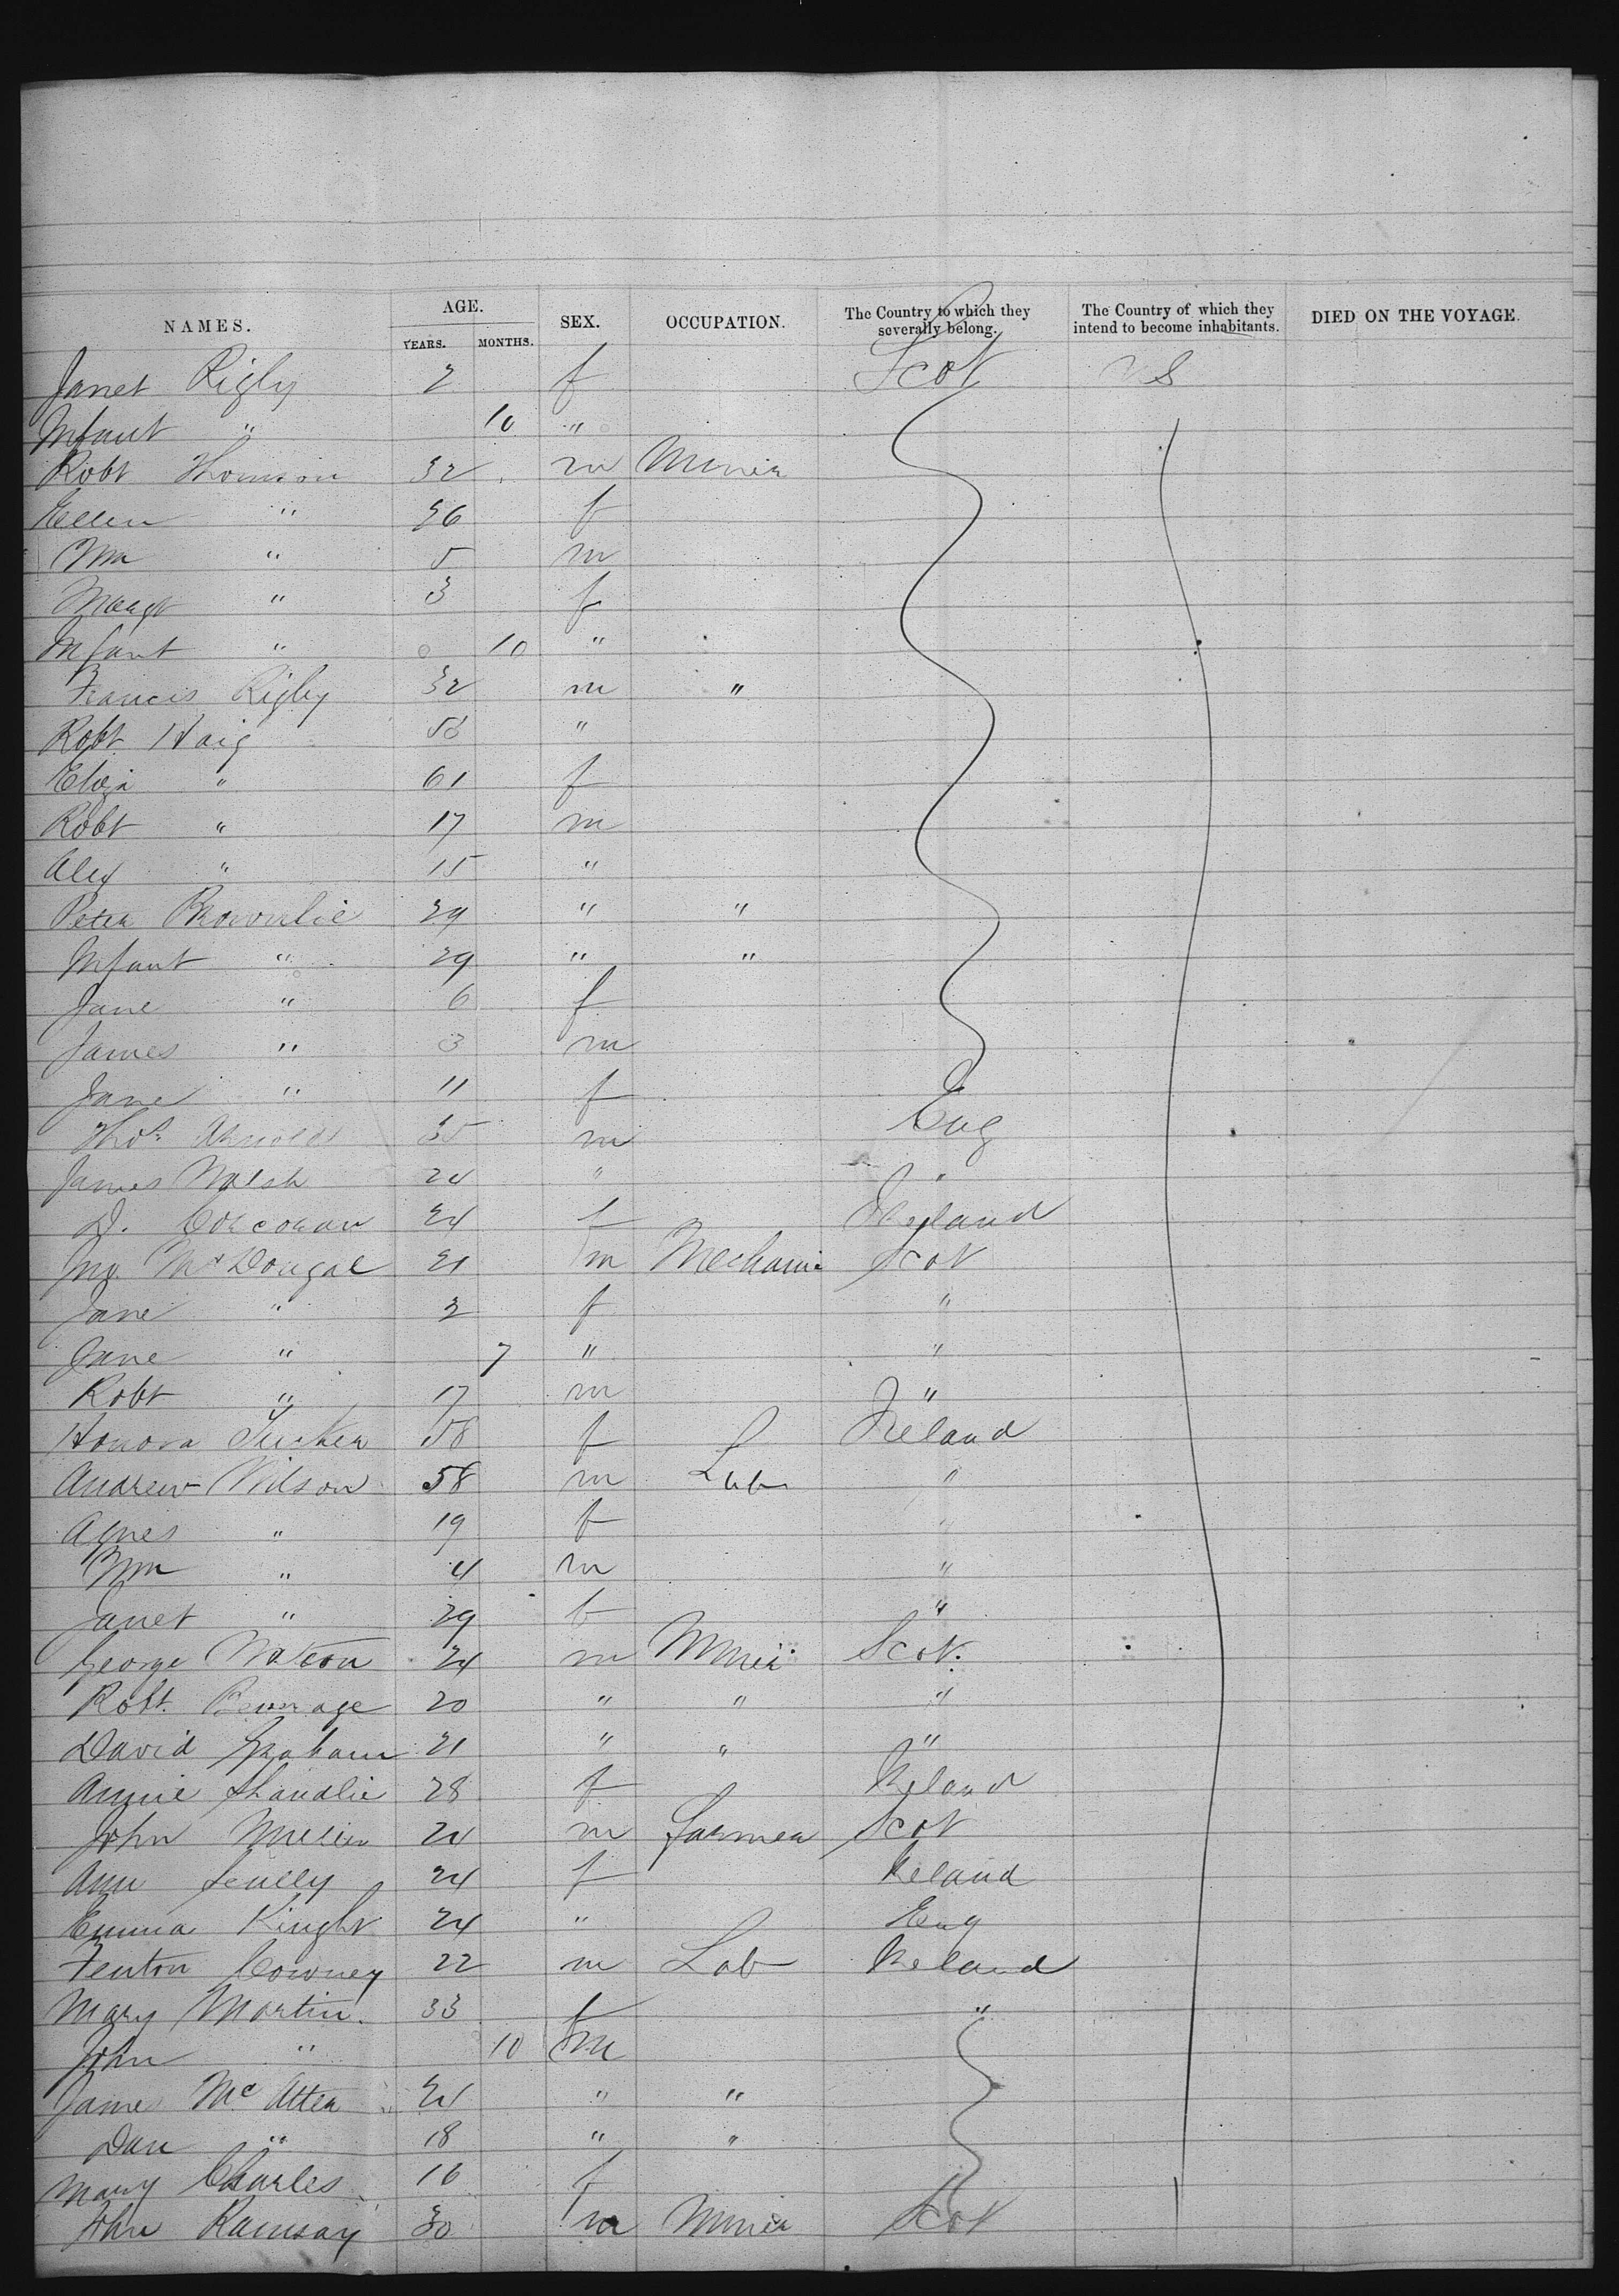 NAMES. AGE. YEARS. MONTHS. SEX. OCCUPATION. The Country to which they severally belong. The Country of which they intend to become inhabitants. DIED ON THE VOYAGE.
Janet Rigby 2 f Scot US
Infant " 10 "
Robt Thomson 32 m Miner
Ellen " 36 f
Wm " 5 m
Margt " 3 f
Infant " 0 10 "
Francis Rigby 32 m "
Robt Haig 58 "
Eliza " 61 f
Robt " 17 m
Alex " 15 "
Peter Brownlie 29 " "
Infant " 29 " "
Jane " 6 f
James " 3 m
Jane " 11 f
Thos Arnold 35 m Eng
James Walsh 24 " "
D. Corcoran 24 f Ireland
Jno. McDougal 21 m Mechanic Scot
Jane " 2 f "
Jane " 7 " "
Robt " 17 m "
Honora Tucker 58 f Ireland
Andrew Wilson 58 m Lab "
Agnes " 19 f "
Wm " 4 m "
Janet " 29 f "
George Watson 24 m Miner Scot.
Robt. 20 " " "
David Graham 21 " " "
Annie 28 f Ireland
John Miller 24 m Farmer Scot
Ann Scully 24 f Ireland
Emma Knight 24 " Eng
Fenton Cowney 22 m Lab Ireland
Mary Martin. 33 f "
John " 10 m
James Mc Atter 24 " "
Dan " 18 " "
Mary Charles 16 f
John Ramsay 30 m Miner Scot